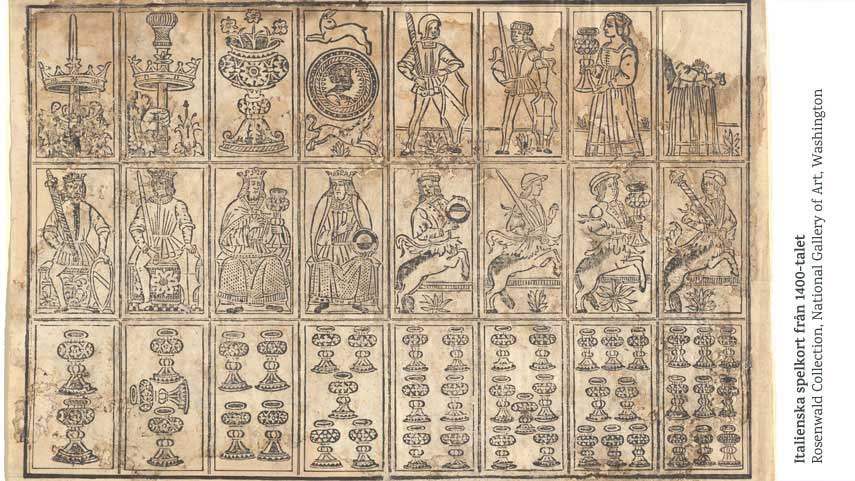 Italienska spelkort från 1400-talet
Rosenwald Collection, National Gallery of Art, Washington